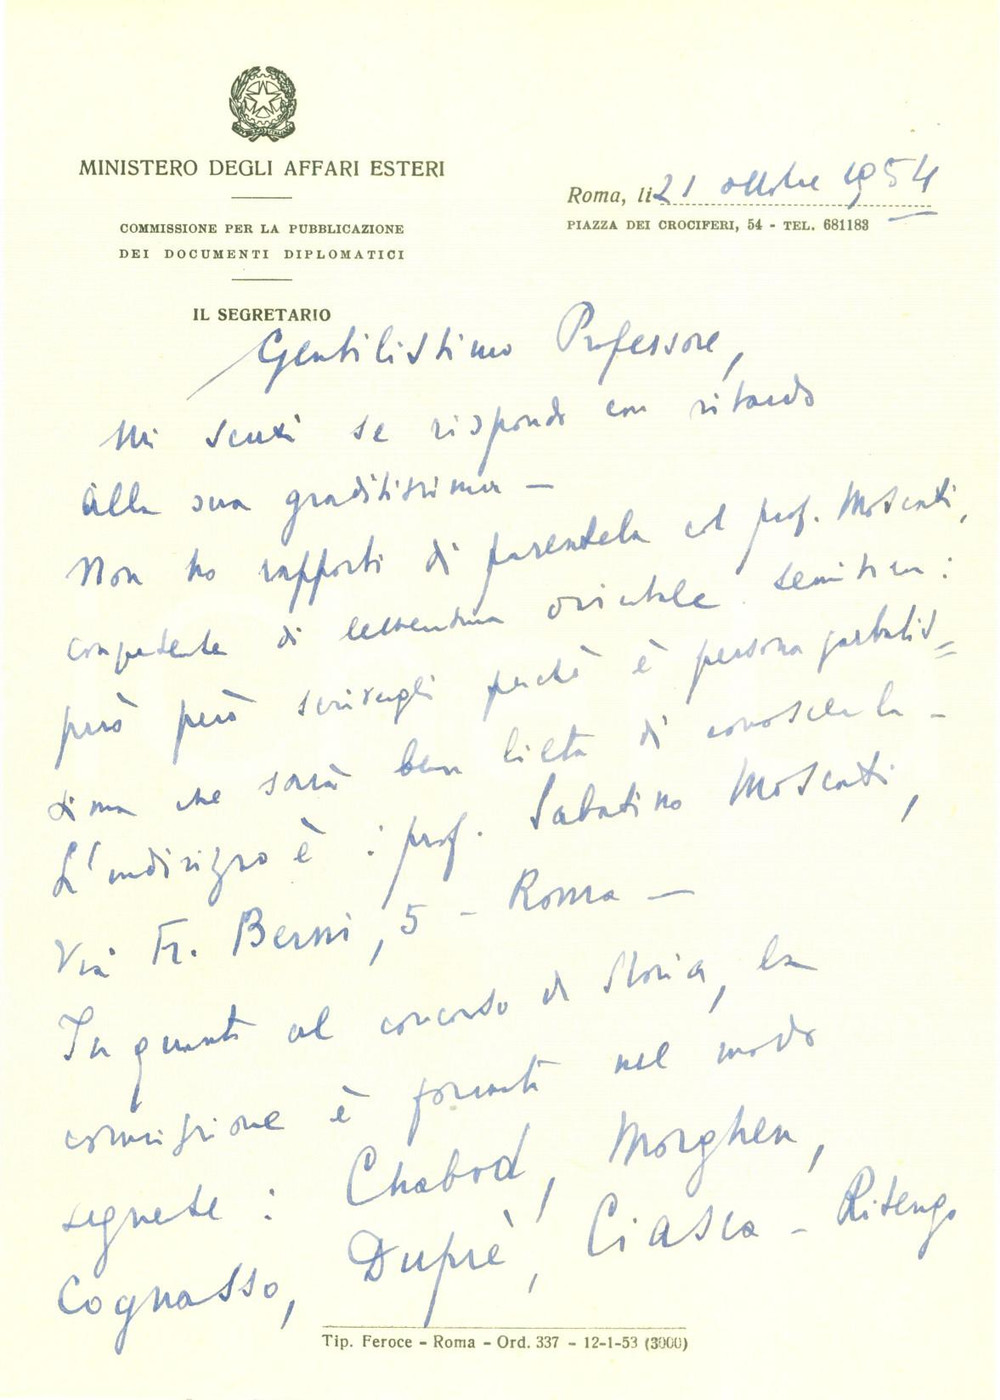 MINISTERO DEGLI AFFARI ESTERI
COMMISSIONE PER LA PUBBLICAZIONE
DEI DOCUMENTI DIPLOMATICI
IL SEGRETARIO
Roma, li 21 ottobre 1954
PIAZZA DEI CROCIFERI, 54 - TEL. 681183
Gentilissimo Professore,
Mi scusi se rispondo con ritardo
alla sua graditissima —
Non ho rapporti di parentela col prof. Moscati,
competente di letteratura orientale semitica:
però però scrivergli perché è persona garbatis=
sima che sarà ben lieta di conoscerla —
L'indirizzo è: prof. Sabatino Moscati,
Via Fr. Berni, 5 - Roma —
In quanto al concorso di Storia, la
commissione è formata nel modo
seguente: Chabod, Morghen,
Cognasso, Duprè, Ciasca - Ritengo
Tip. Feroce - Roma - Ord. 337 - 12-1-53 (3000)